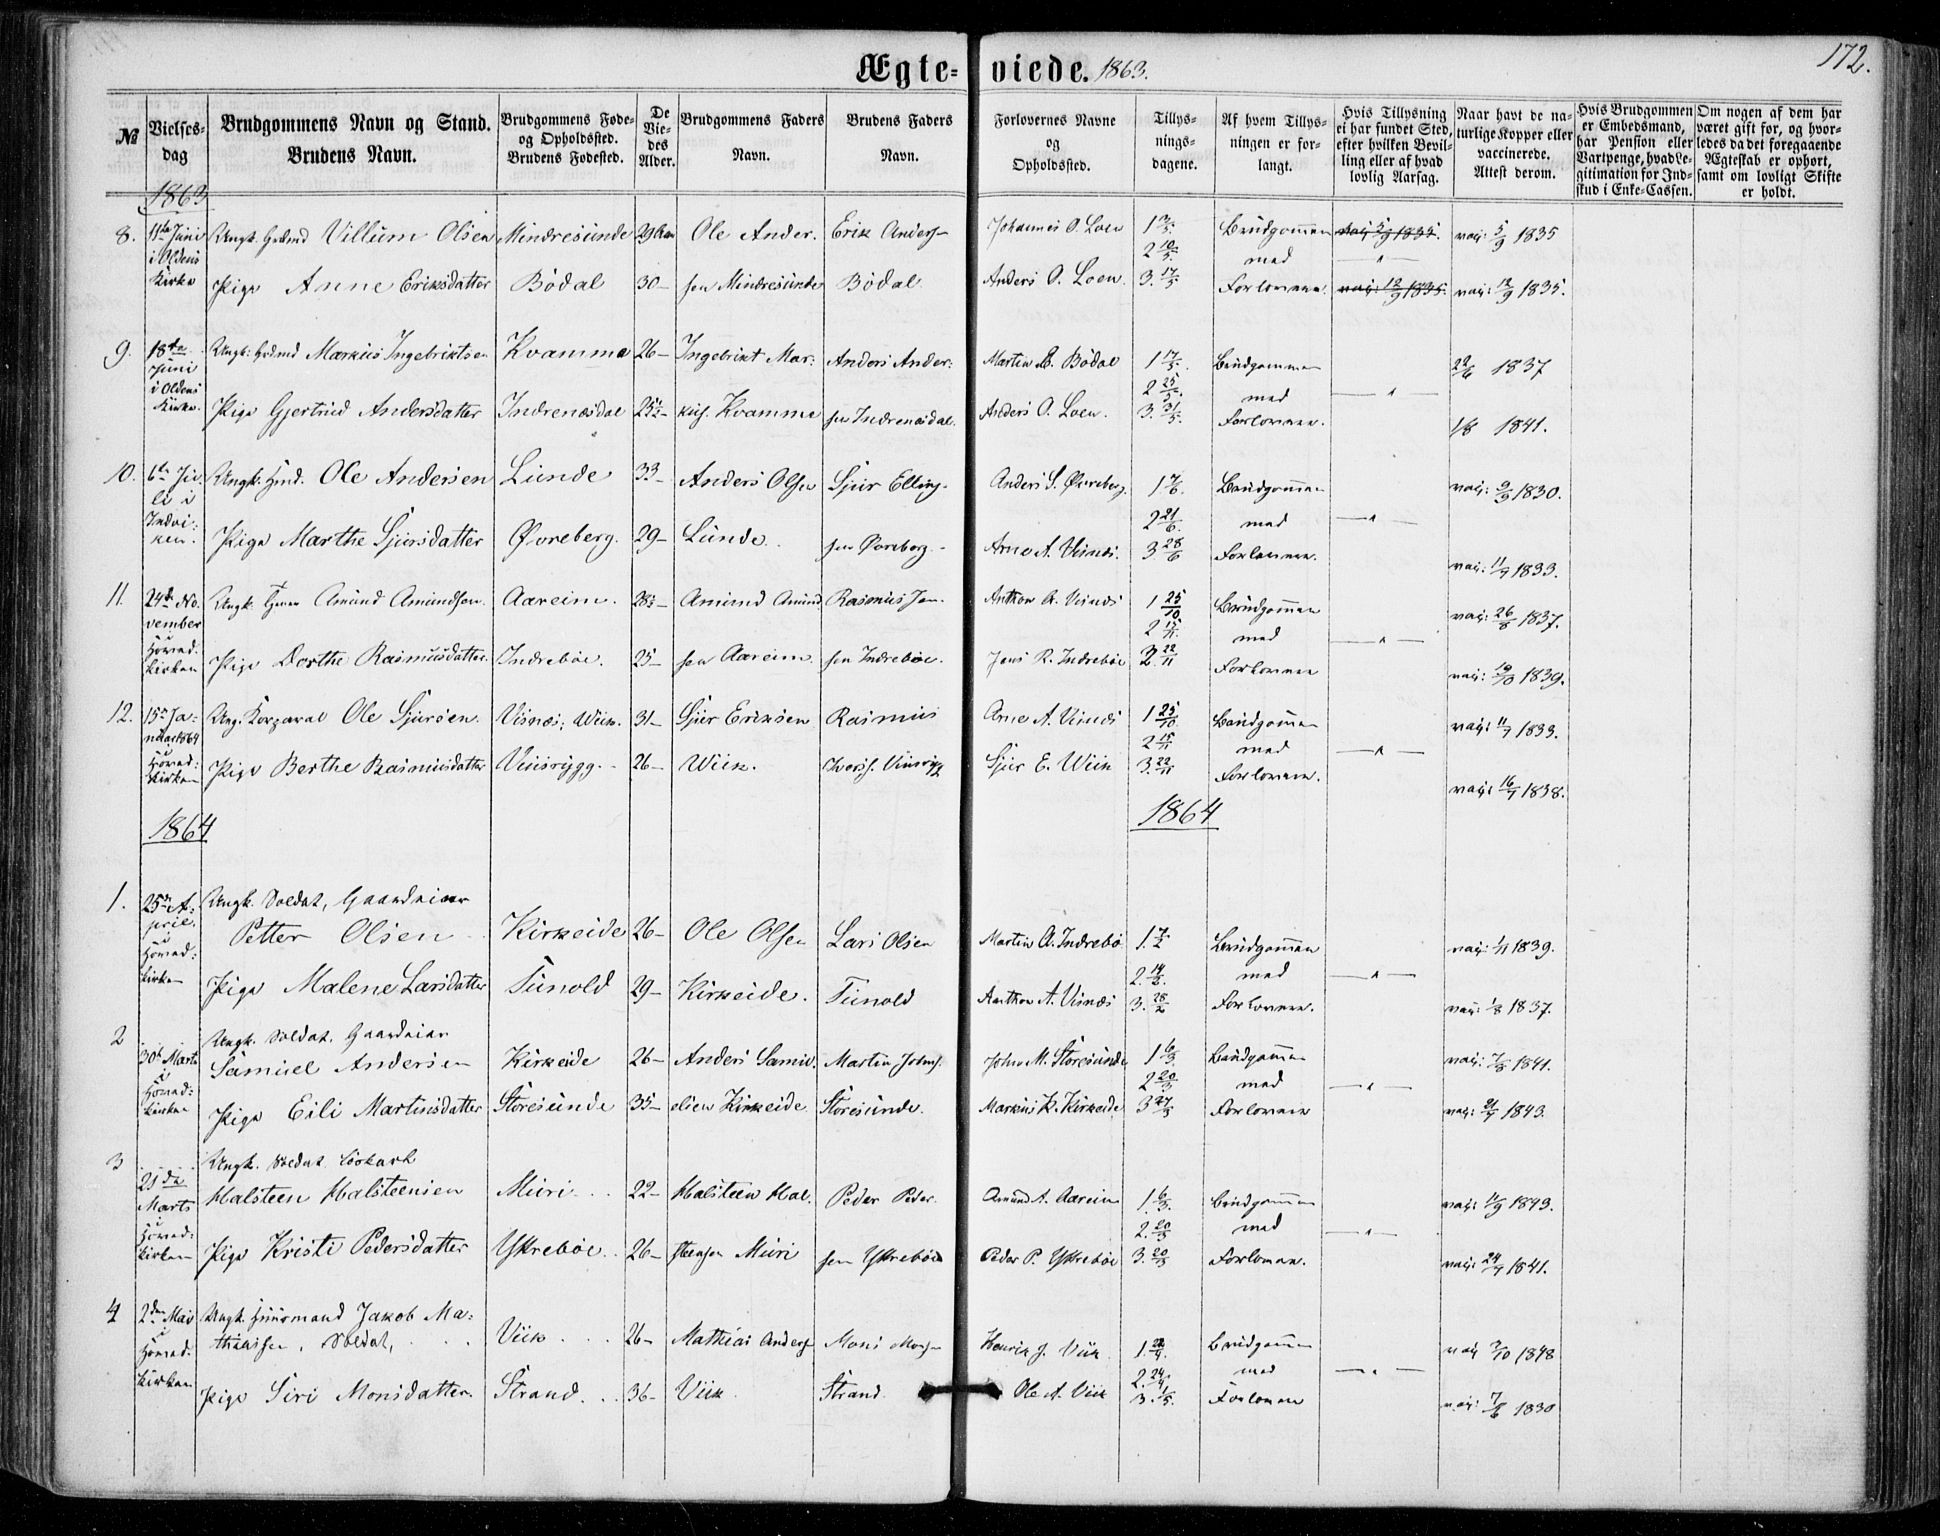 172.
Ægteviede. 1863.
№
Vielsesdag
Brudgommens Navn og Stand.
Brudens Navn.
Brudgommens Føde- og Opholdssted.
Brudens Fødested.
De Viedes Alder.
Brudgommens Faders Navn.
Brudens Faders Navn.
Forlovernes Navne og Opholdssted.
Tillysningsdagene.
Af hvem Tillysningen er forlangt.
Hvis Tillysning ei har fundet Sted, efter hvilken Bevilling eller af hvad lovlig Aarsag.
Naar havt de naturlige Kopper eller vaccinerede. Attest derom.
Hvis Brudgommen er Embedsmand, har Pension eller Vartpenge, hvad Legitimation for Indskud i Enke-Cassen.
Om nogen af dem har været gift før, og hvorledes da det foregaaende Ægteskab er ophørt, samt om lovligt Skifte er holdt.
1863
8. 11te Juni i Oldens Kirke Ungk. Villum Olsen Mindresunde 29 Ole Anders- Erik Anders- Johannes O. Loen 1 3/5 2 10/5 Brudgommen med vac: 5/9 1835
Pige Anne Eriksdatter Bødal 30 sen Mindresunde Bødal Anders O. Loen 3. 17/5 Forloveren vac: 12/9 1835.
9. 18de Juni i Oldens Kirke. Ungk: Markus Ingebriktsen Kvamme 26 Ingebrikt Mar- Anders Ander- Martin Bødal 1 17/5 2 25/5 Brudgommen med 22/6 1837
Pige Gjertrud Andersdatter Indrenæsdal kus. Kvamme sen Indrenæsdal. Anders O. Loen. 3. 31/5 Forloveren. 1/8 1841.
10. 6te Juli i Indviken. Ungk. Ole Andersen Lunde 33 Anders Olsen Sjur Elling- Anders S. Øvreberg. 1 7/6. 2 21/6 Brudgommen med vac: 9/9 1830.
Pige Marthe Sjursdatter Øvreberg. 29 Lunde. sen Øvreberg. Arne A. Visnæs. 3 28/6 Forloveren. vac: 11/7 1833.
11. 24de November Hovedkirken Ungk. Amund Amundsen. Aareim. Amund Amund Rasmus Jen- Anthon A. Visnæs 1 25/10 2 15/11 Brudgommen med vac: 26/8 1837.
Pige Dorthe Rasmusdatter. Indrebøe. 25 sen Aareim sen Indrebøe. Jens R. Indrebøe 22/11 Forloveren vac: 19/10 1839.
12. 15de Januar 1864 Hovedkirken Ung. Korporal Ole Sjursen. Visnæs, Wiik. 31 Sjur Eriksen Rasmus Arne A. Visnæs 1 25/10 2 15/11 Brudgommen med vac: 11/7 1833.
Pige Berthe Rasmusdatter 26 Wiik. Sjur E. Wiik 3. 22/11 Forloveren. vac: 16/7 1838.
1864 1864
1. 25de April. i Hovedkirken Ungk. Soldat, Gaardeier
Petter Olsen Kirkeide 26 Ole Olsen Lars Olsen Martin A. Indrebø 1. 7/2 Brudgommen med vac: 1/11 1839.
Pige Malene Larsdatter Tunold 29 Kirkeide. Tunold Anthon A. Visnæs 2. 14/2. 3. 28/2 Forloveren. vac: 1/8 1837.
2 30te Marts i Hovedkirken Ungk. Soldat. Gaardeier
Samuel Andersen Kirkeide 26 Anders Samu- Martin Johns. John M. Storesunde 1 6/3 2 20/3 Brudgommen med vac: 7/8 1841.
Pige Eili Martinsdatter Storesunde 35 elsen Kirkeide Storesunde. Markus K. Kirkeide 3 27/3 Forloveren vac: 21/7 1843.
3 21de Marts i Hovedkirken Ungk. Soldat
Halsteen Halsteensen Muri 22 Halsteen Hal- Peder Peder- Amund A. Aareim 1. 6/3. 2. 20/3 Brudgommen med vac: 11/9 1843.
Pige Kristi Pedersdatter Yttrebøe 26 steensen Muri sen Yttrebøe Peder P. Yttrebøe 3. 20/3 Forloveren. vac: 24/7 1841.
4 2den Mai i Hovedkirken Ungk. Huusmand Jakob Ma-
thiassen, Soldat, Viik 26 Mathias Anders- Mons Mons- Henrik J. Viik 2. 24/4. Brudgommen med vac 3/10 1848
Pige Siri Monsdatter Strand 36 Viik Strand Ole A. Viik 3. 1/5. Forloveren vac: 7/6 1830